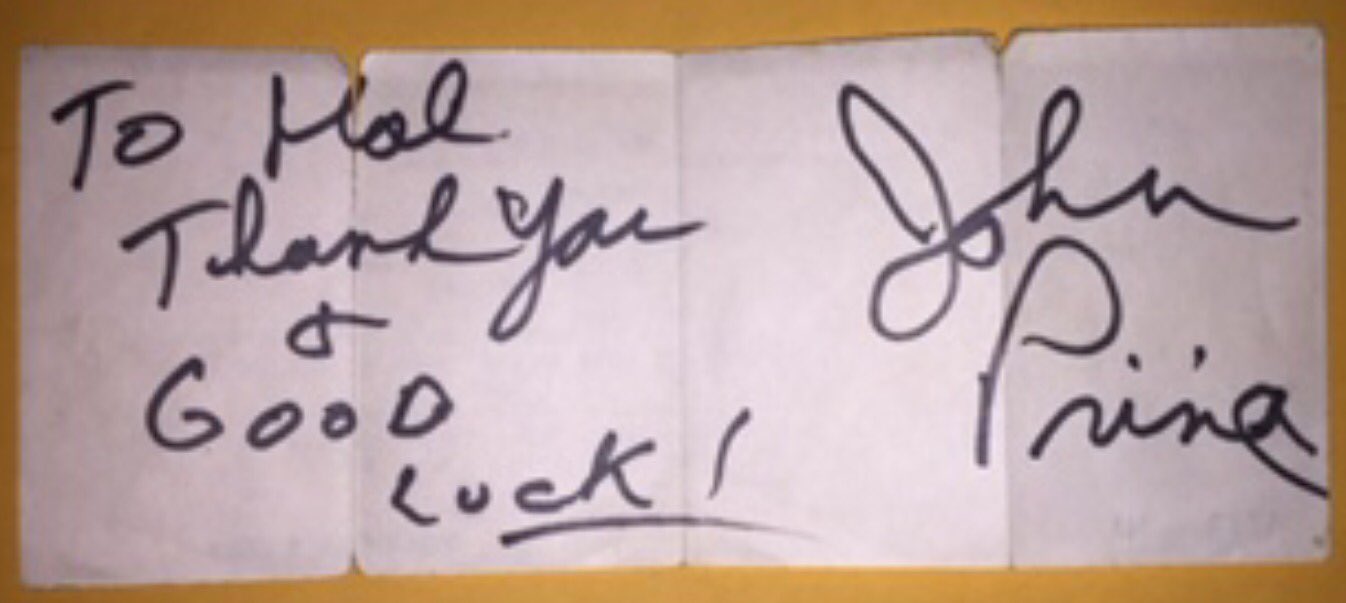 To Hal
Thank You
&
GOOD
LUCK!
John
Prine